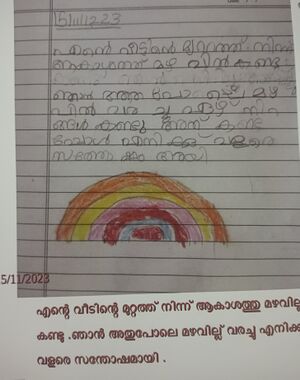 5/11/23
എന്റെ വീട്ടിന്റെ മുറ്റത്ത് നിന്ന്
ആകാശത്ത് മഴ വിൽ കണ്ടു
ഞാൻ അത് പോ മഴ
വിൽ വര ച്ചു ഏഴ് നിറ
ങ്ങൾ കണ്ടു അത് കണ്ട
പ്പോൾ എനിക്കു വളരെ
സന്തോ ഷം ആയി
5/11/2023
എന്റെ വീടിന്റെ മുറ്റത്ത് നിന്ന് ആകാശത്തു മഴവില്ല
കണ്ടു .ഞാൻ അതുപോലെ മഴവില്ല് വരച്ചു എനിക്ക
വളരെ സന്തോഷമായി .